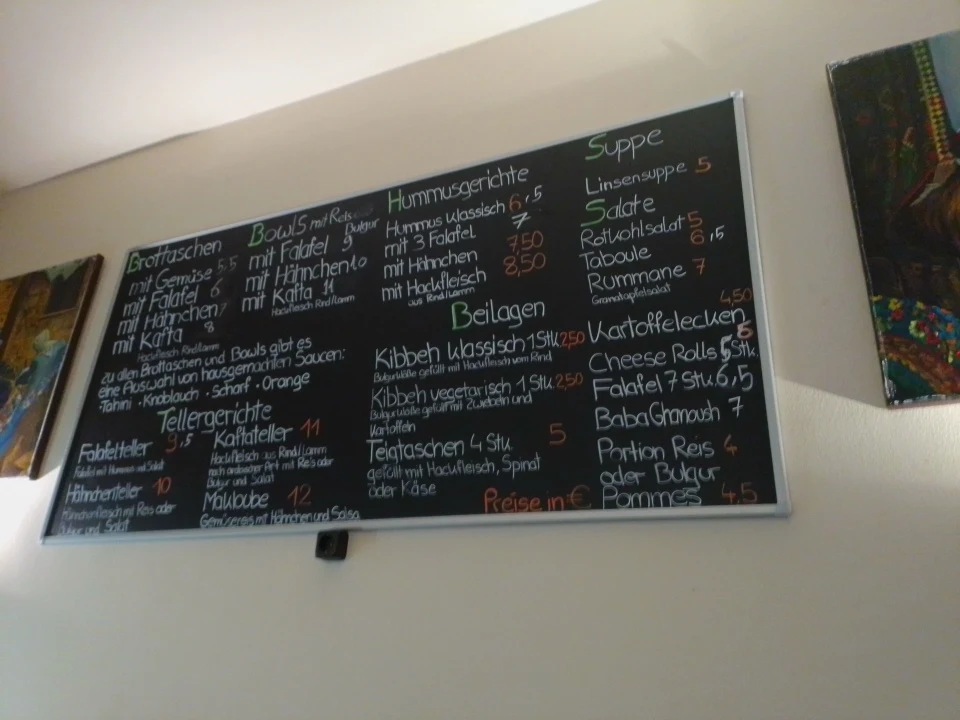 Brottaschen
mit Gemüse 5,5
mit Falafel 6
mit Hähnchen 7
mit Kafta 8
Hackfleisch Rind/Lamm
zu allen Brottaschen und Bowls gibt es
eine Auswahl von hausgemachten Saucen:
·Tahini · Knoblauch · Scharf · Orange
Bowls mit Reis
Bulgur
mit Falafel 9
mit Hähnchen 10
mit Kafta 11
Hackfleisch Rind/Lamm
Tellergerichte
Falafelteller 9,5
Falafel mit Hummus und Salat
Hähnchenteller 10
Hähnchenfleisch mit Reis oder
Bulgur und Salat
Kaftateller 11
Hackfleisch aus Rind/Lamm
nach arabischer Art mit Reis oder
Bulgur und Salat
Makloube 12
Gemüsereis mit Hähnchen und Salsa
Hummusgerichte
Hummus klassisch 6,5
mit 3 Falafel 7
mit Hähnchen 7,50
mit Hackfleisch 8,50
aus Rind/Lamm
Beilagen
Kibbeh klassisch 1 Stk 2,50
Bulgurklöße gefüllt mit Hackfleisch vom Rind
Kibbeh vegetarisch 1 Stk. 2,50
Bulgurklöße gefüllt mit Zwiebeln und
Kartoffeln
Teigtaschen 4 Stk 5
gefüllt mit Hackfleisch, Spinat
oder Käse
Preise in €
Suppe
Linsensuppe 5
Salate
Rotkohlsalat 5
Taboule 6,5
Rummane 7
Granatapfelsalat
Kartoffelecken 4,50
Cheese Rolls 5 Stk. 6
Falafel 7 Stk. 6,5
Baba Ghanoush 7
Portion Reis 4
oder Bulgur
Pommes 4,5